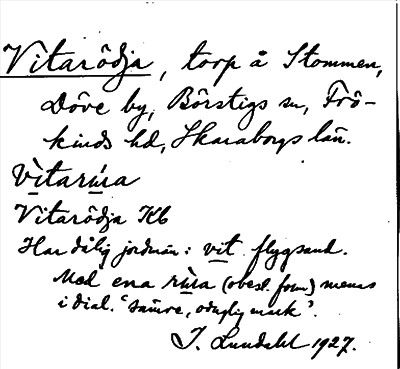 Vitarödja, torp å Stommen,
Döve by, Börstigs sn, Frö-
kinds hd, Skaraborgs län.
vìtarúra
Vitarödja Kb
Har dålig jordmån: vit flygsand.
Med ena rùra (obest. form) menas
i dial. "sämre, oduglig mark".
I. Lundahl 1927.